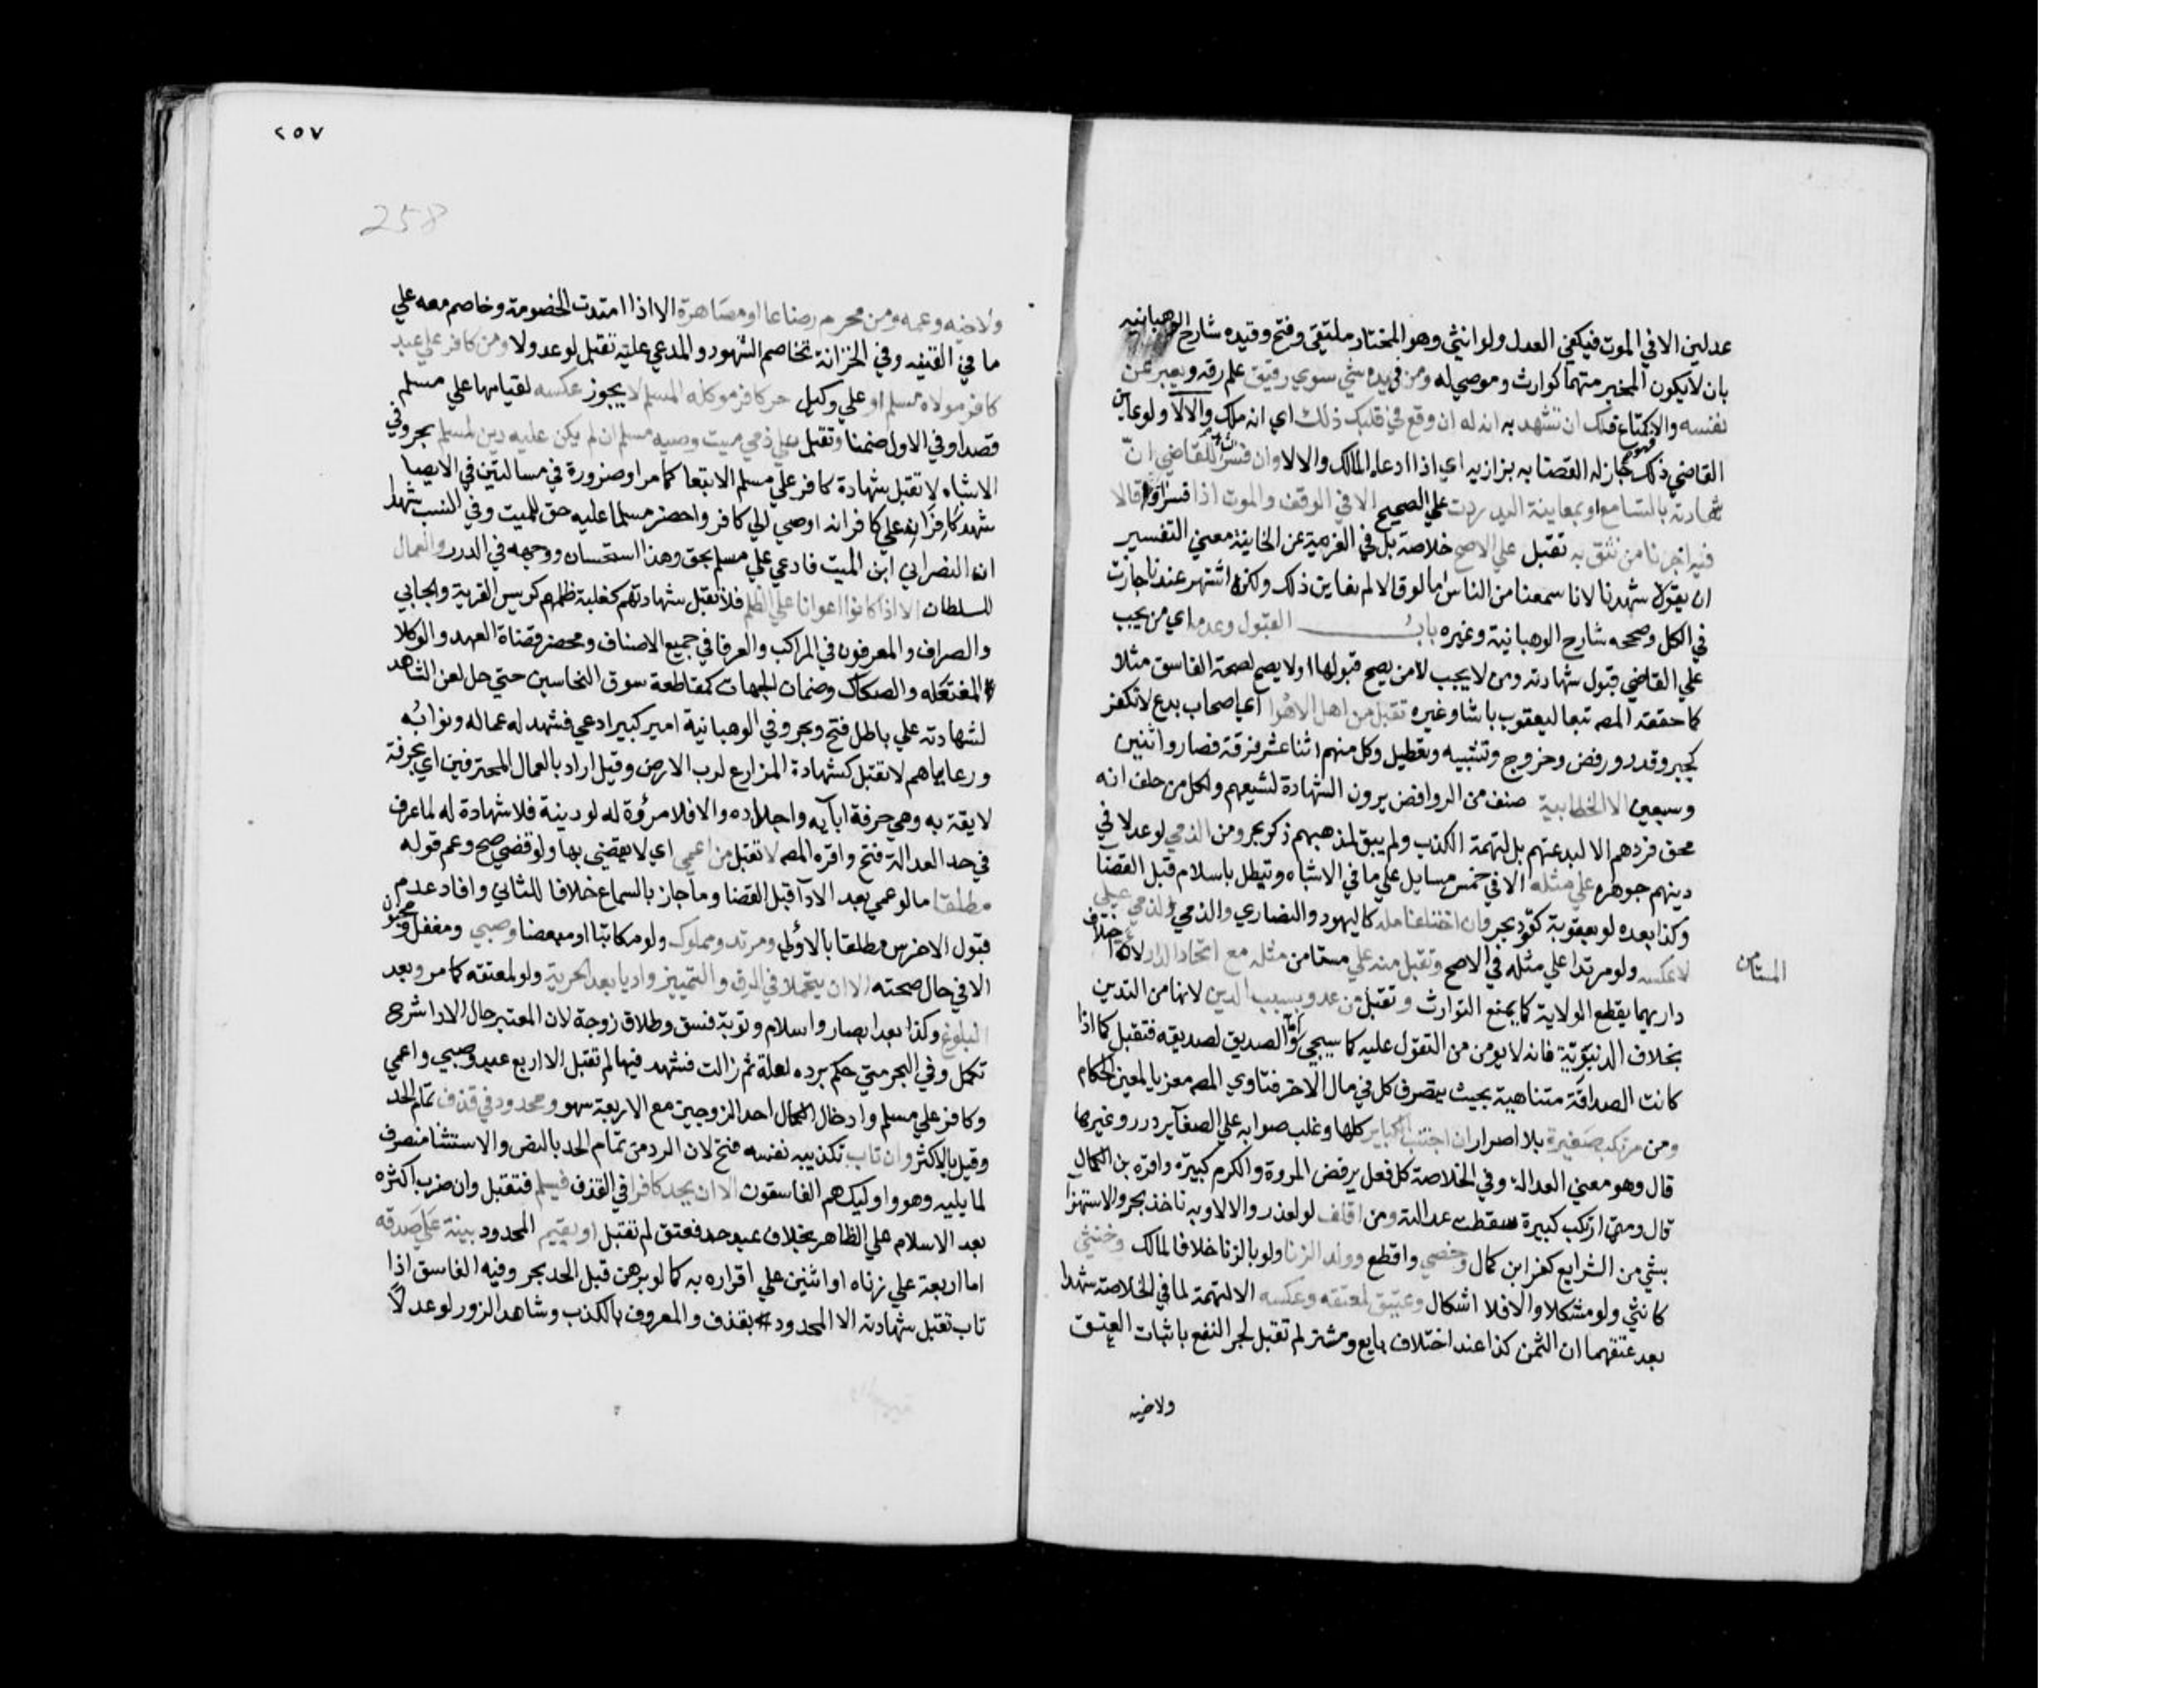 عدلين الا في الموت فيكفي العدل ولو انثي وهو المختار ملتقي وفتح وقيده شارح الوهبانيه
بان لا يكون المخبر متهما كوارث وموصي له ومن في يده شي سوي رقيق علم رقه ويعبر عن
نفسه والا كمتاع فلك ان تشهد به انه له ان وقع في قلبك ذلك اي انه ملك والا لا ولو عاين
القاضي ذلك جاز له القضا به بزازيه اي اذا ادعاه المالك والا لا وان فسر الشاهد للقاضي ان
شهادته بالتسامع او بمعاينة اليد ردت علي الصحيح الا في الوقف والموت اذا فسرا وقالا
فيه اخبرنا من نثق به تقبل علي الاصح خلاصة بل في العزمية عن الخانية معني التفسير
ان يقولا شهدنا لانا سمعنا من الناس اما لو قالا لم نعاين ذلك ولكنه اشتهر عندنا جازت
في الكل وصححه شارح الوهبانية وغيره باب القبول وعدمه اي من يجب
علي القاضي قبول شهادته ومن لا يجب لا من يصح قبولها او لا يصح لصحة الفاسق مثلا
كما حققه المصه تبعا ليعقوب باشا وغيره تقبل من اهل الاهوا اي اصحاب بدع لا تكفر
كجبر وقدر ورفض وخروج وتشبيه وتعطيل وكل منهم اثنا عشر فرقة فصاروا اثنين
وسبعين الا الخطابية صنف من الروافض يرون الشهادة لشيعهم ولكل من حلف انه
محق فردهم لا لبدعتهم بل لتهمة الكذب ولم يبق لمذهبهم ذكر بحر ومن الذمي لو عدلا في
دينهم جوهره علي مثله الا في خمس مسايل علي ما في الاشباه وتبطل باسلامه قبل القضا
وكذا بعده لو بعقوبة كقود بحر وان اختلفا مله كاليهود والنصاري والذمي علي
المستامن
لا عكسه ولو مرتدا علي مثله في الاصح وتقبل منه علي مستامن مثله مع اتحاد الدار لان اختلاف
داريهما يقطع الولاية كما يمنع التوارث وتقبل من عدو بسبب الدين لانها من التدين
بخلاف الدنيوية فانه لا يومن من التقول عليه كما سيجي واما الصديق لصديقه فتقبل كما اذا
كانت الصداقة متناهية بحيث يتصرف كل في مال الاخر فتاوي المصه معزيا لمعين الحكام
ومن مرتكب صغيرة بلا اصرار ان اجتنب الكباير كلها وغلب صوابه علي الصغاير درر وغيرها
قال وهو معني العدالة وفي الخلاصة كل فعل يرفض المروة والكرم كبيرة واقره بن الكمال
قال ومتي ارتكب كبيرة سقطت عدالته ومن اقلف لو لعذر والا لا وبه ناخذ بحر والاستهزا
بشي من الشرايع كفر ابن كمال وخصي واقطع وولد الزنا ولو بالزنا خلافا لمالك وخنثي
كانثي ولو مشكلا والا فلا اشكال وعتيق لمعتقه وعكسه الا لتهمة لما في الخلاصة شهدا
بعد عتقهما ان الثمن كذا عند اختلاف بايع ومشتر لم تقبل لجر النفع باثبات العتق
ولاخيه
٢٥٧
258
ولاخيه وعمه ومن محرم رضاعا او مصاهرة الا اذا امتدت الخصومة وخاصم معه علي
ما في القنيه وفي الخزانة تخاصم الشهود والمدعي عليه تقبل لو عدولا ومن كافر علي عبد
كافر مولاه مسلم او علي وكيل حر كافر موكله المسلم لا يجوز عكسه لقيامها علي مسلم
قصدا وفي الاول ضمنا وتقبل علي ذمي ميت وصيه مسلم ان لم يكن عليه دين لمسلم بحر وفي
الاشباه لا تقبل شهادة كافر علي مسلم الا تبعا كما مر او ضرورة في مسالتين في الايصا
شهد كافران علي كافر انه اوصي الي كافر واحضر مسلما عليه حق للميت وفي النسب شهدا
ان النصراني ابن الميت فادعي علي مسلم بحق وهذا استحسان ووجهه في الدرر والعمال
للسلطان الا اذا كانوا اعوانا علي الظلم فلا تقبل شهادتهم كغلبة ظلمهم كريس القرية والجابي
والصراف والمعرفون في المراكب والعرفا في جميع الاصناف ومحضر قضاة العهد والوكلا
المفتعله والصكاك وضمان الجهات كمقاطعة سوق النخاسين حتي حل لعن الشاهد
لشهادته علي باطل فتح وبحر وفي الوهبانية امير كبير ادعي فشهد له عماله ونوابه
ورعاياهم لا تقبل كشهادة المزارع لرب الارض وقيل اراد بالعمال المحترفين اي بحرفة
لايقة به وهي حرفة ابايه واجداده والا فلا مروة له لو دينة فلا شهادة له لما عرف
في حد العدالة فتح واقره المصه لا تقبل من اعمي اي لا يقضي بها ولو قضي صح وعم قوله
مطلقا ما لو عمي بعد الادا قبل القضا وما جاز بالسماع خلافا للثاني وافاد عدم
قبول الاخرس مطلقا بالاولي ومرتد ومملوك ولو مكاتبا او مبعضا وصبي ومغفل ومجنون
الا في حال صحته الا ان يتحملا في الرق والتمييز واديا بعد الحرية ولو لمعتقه كما مر وبعد
البلوغ وكذا بعد ابصار واسلام وتوبة فسق وطلاق زوجة لان المعتبر حال الادا شرح
تكمل وفي البحر متي حكم برده لعلة ثم زالت فشهد فيها لم تقبل الا اربع عبد وصبي واعمي
وكافر علي مسلم وادخال الكمال احد الزوجين مع الاربعة سهو ومحدود في قذف تمام الحد
وقيل بالاكثر وان تاب بتكذيبه نفسه فتح لان الرد من تمام الحد بالنص والاستثنا منصرف
لما يليه وهو واوليك هم الفاسقون الا ان يحد كافرا في القذف فيسلم فتقبل وان ضرب اكثره
بعد الاسلام علي الظاهر بخلاف عبد حد فعتق لم تقبل او يقيم المحدود بينة علي صدقه
اما اربعة علي زناه او اثنين علي اقراره به كما لو برهن قبل الحد بحر وفيه الفاسق اذا
تاب تقبل شهادته الا المحدود بقذف والمعروف بالكذب وشاهد الزور لو عدلا